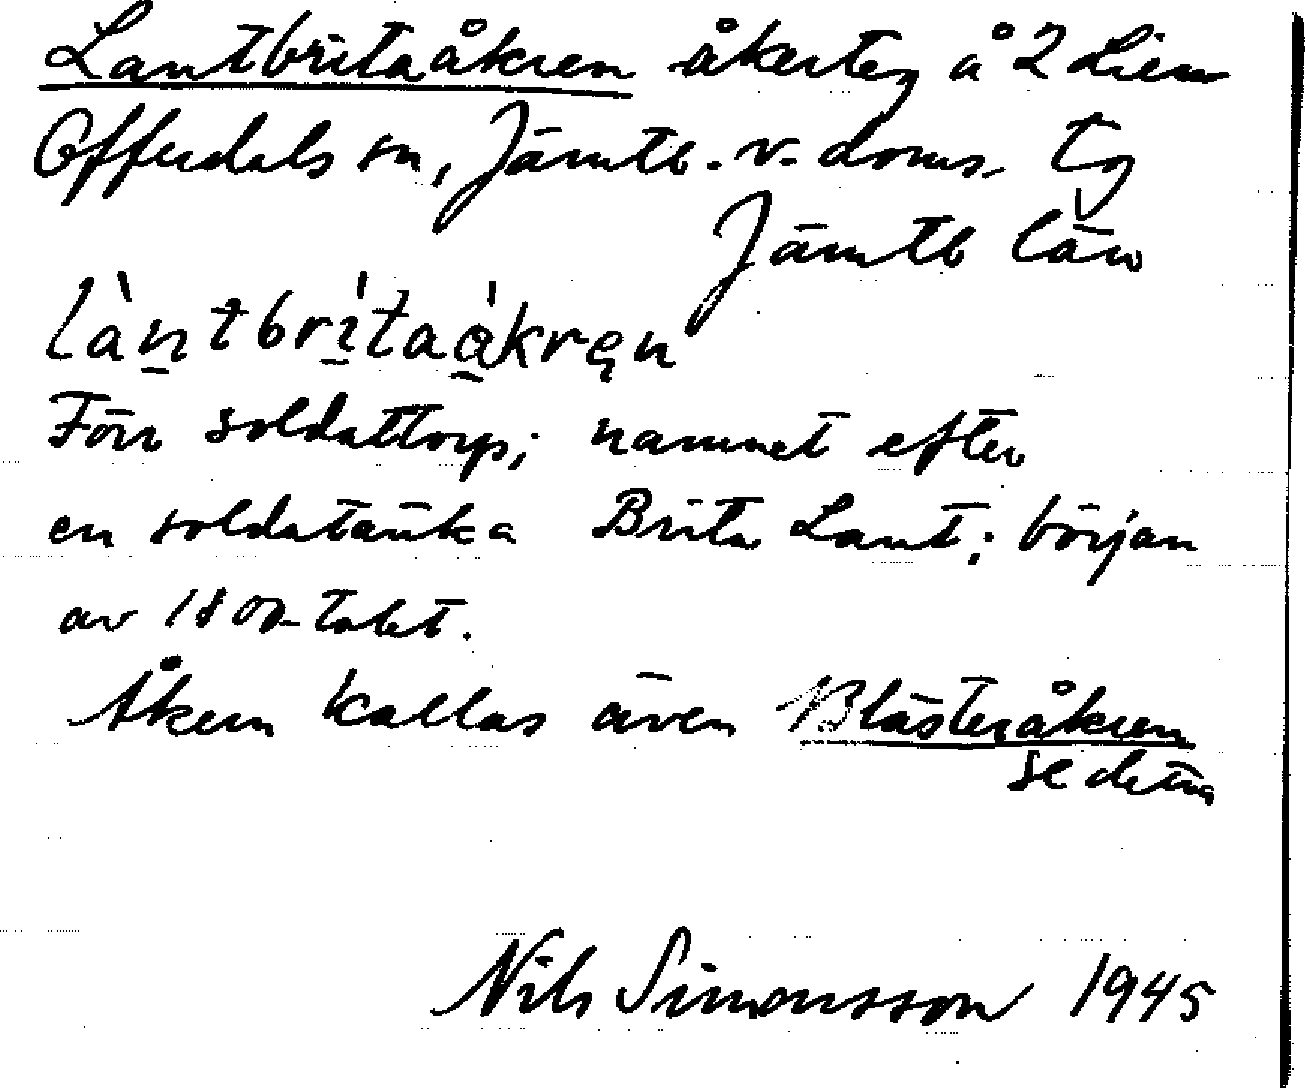 Lantbritaåkren åkerteg å 2 Lien
Offerdals sn, Jämtl. v. doms. tg
Jämtl län
làntbrítaåkręn
Förr soldattorp; namnet efter
en soldatänka Brita Lant; början
av 1800-talet.
Åkern kallas även Blästeråkren
se detta
Nils Simonsson 1945